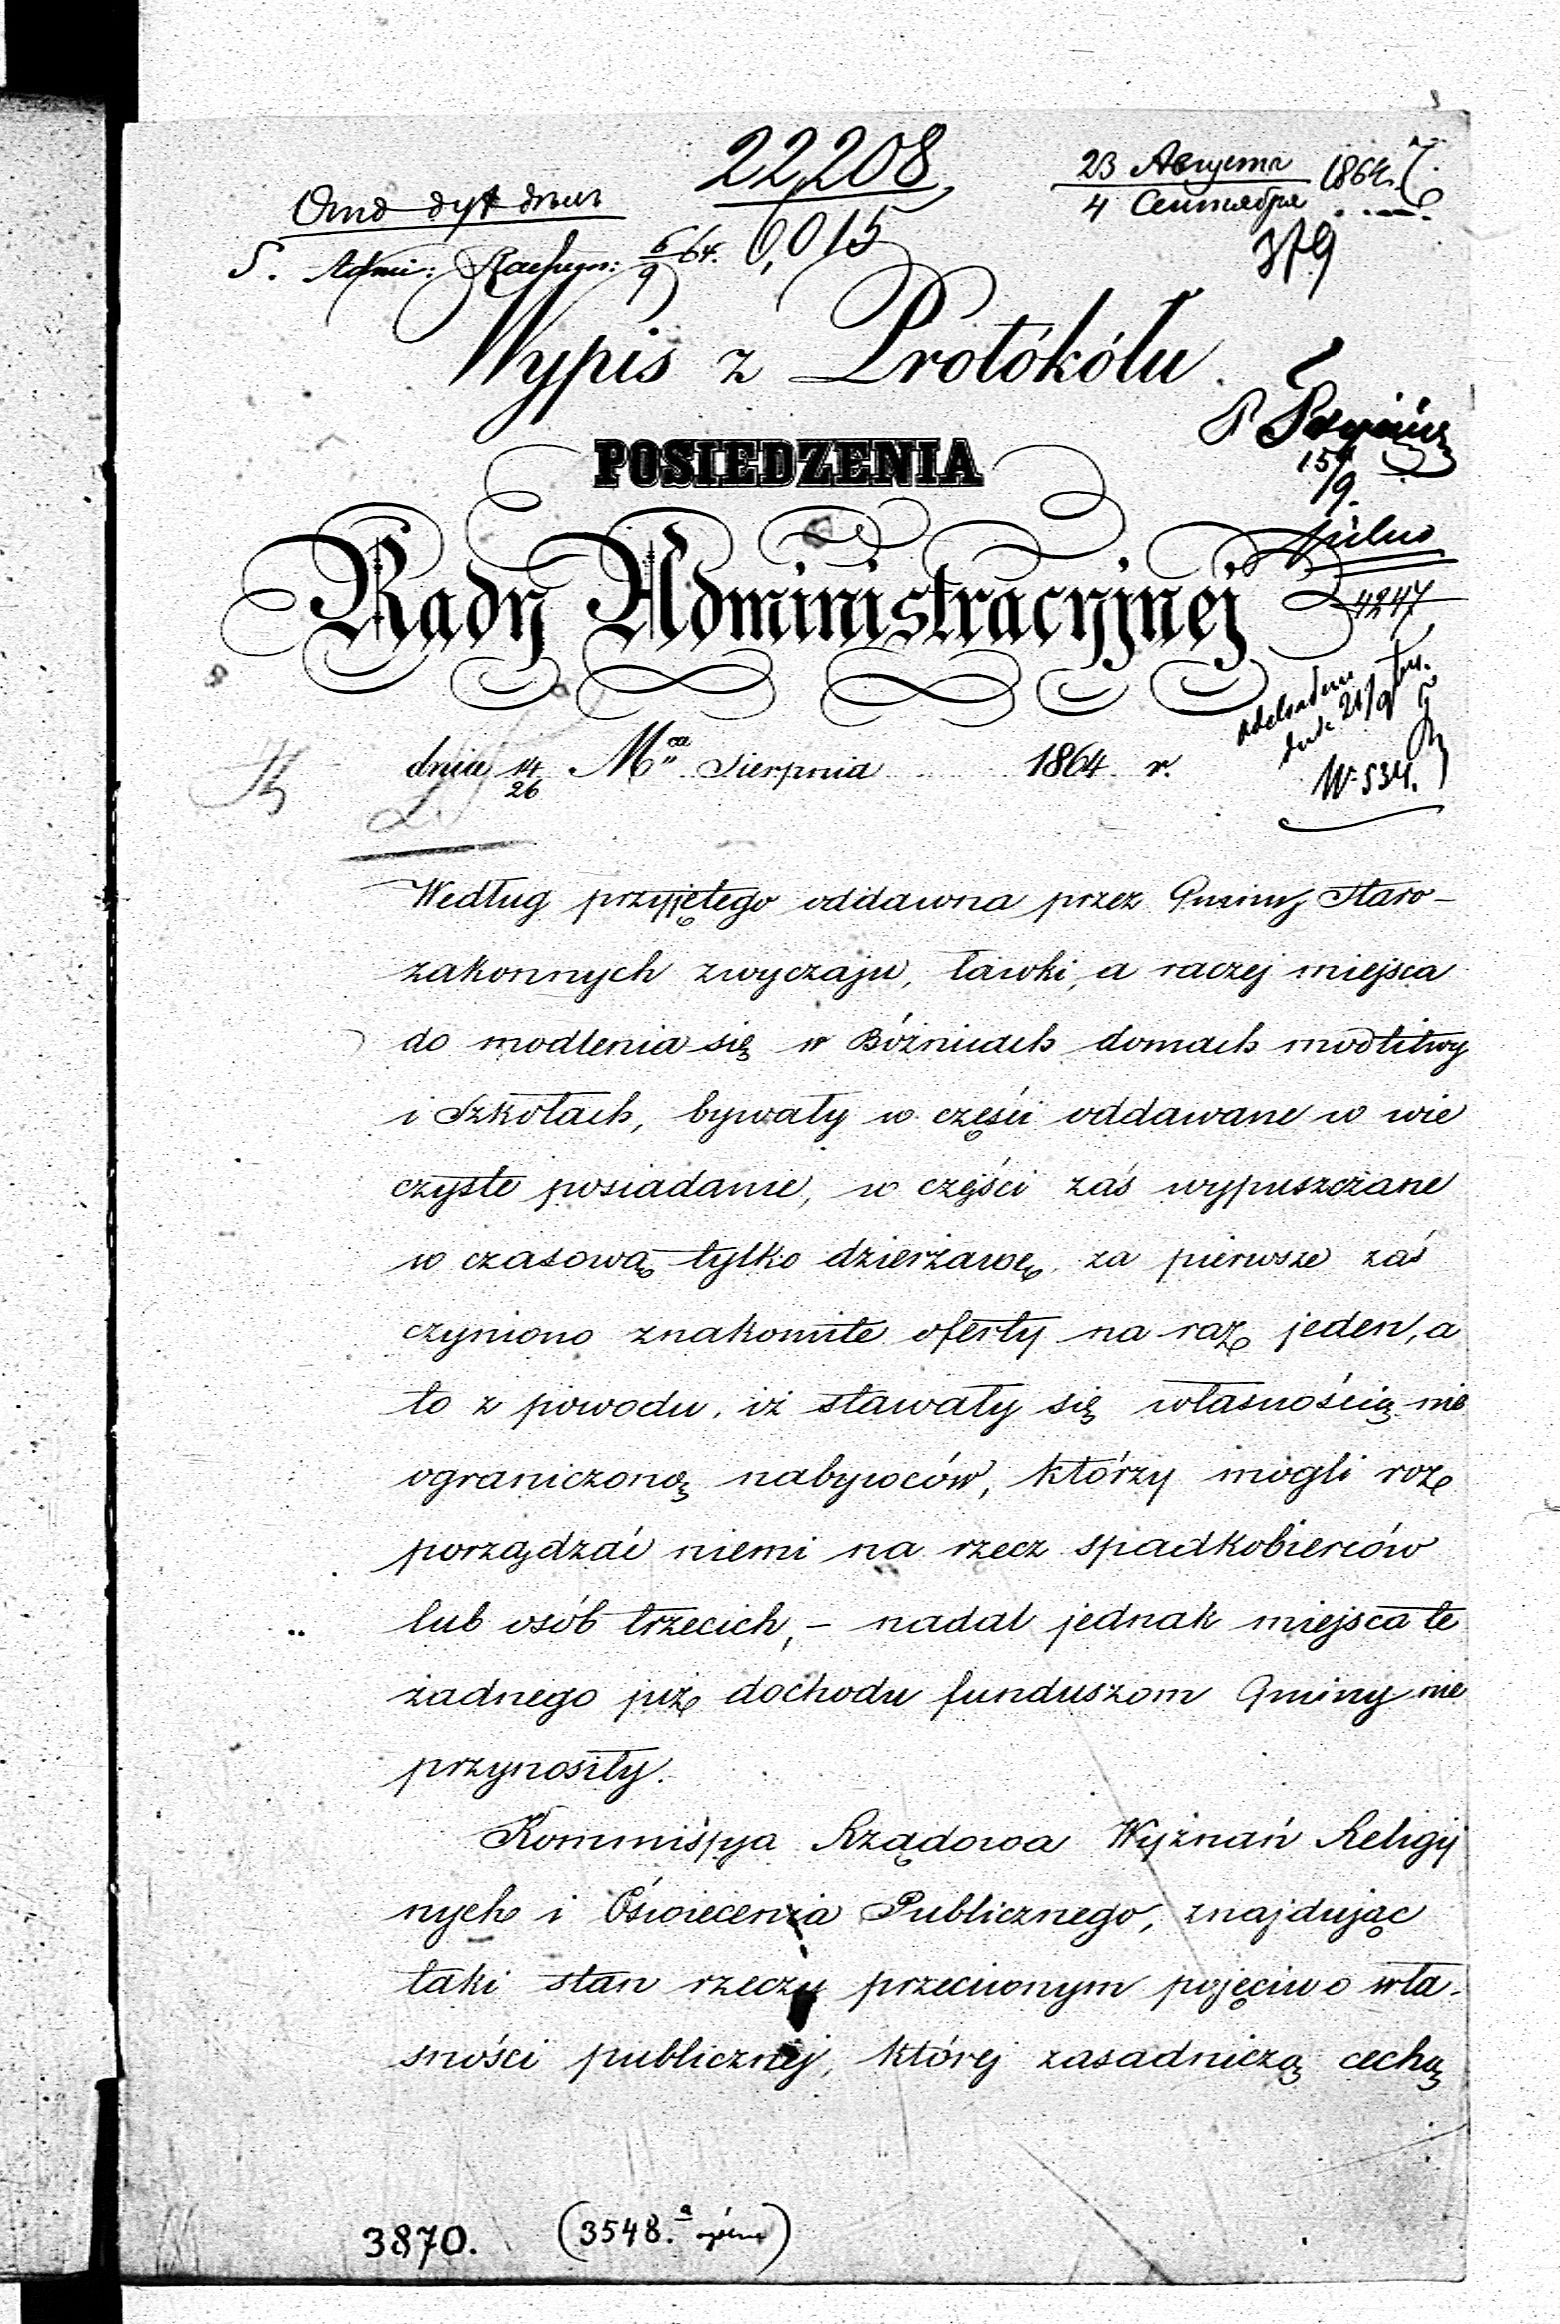 22,208
23 Августа 1864.
4 Сентября
6,015
379
S. Admi: Rachun: 6/9 64.
Wypis z Protokółu
POSIEDZENIA
15/9.
Rady Administracyjnej
pilno
4247
dnia 14/26 Mca Sierpnia 1864 r.
№ 534.
Według przyjętego oddawna przez Gminy Staro-
zakonnych zwyczaju, ławki, a raczej miejsca
do modlenia się w Bóżnicach domach modlitwy
i Szkołach, bywały w części oddawane w wie
czyste posiadanie, w części zaś wypuszczane
w czasową tylko dzierżawę, za pierwsze zaś
czyniono znakomite oferty na raz jeden, a
to z powodu, iż stawały się własnością nie
ograniczoną nabywców, którzy mogli roz
porządzać niemi na rzecz spadkobierców
lub osób trzecich, – nadal jednak miejsca te
żadnego już dochodu funduszom Gminy nie
przynosiły.
Kommissya Rządowa Wyznań Religij
nych i Oświecenia Publicznego, znajdując
taki stan rzeczy przeciwnym pojęciu o wła-
sności publicznej, której zasadniczą cechą
3870. (3548.a ogólna)